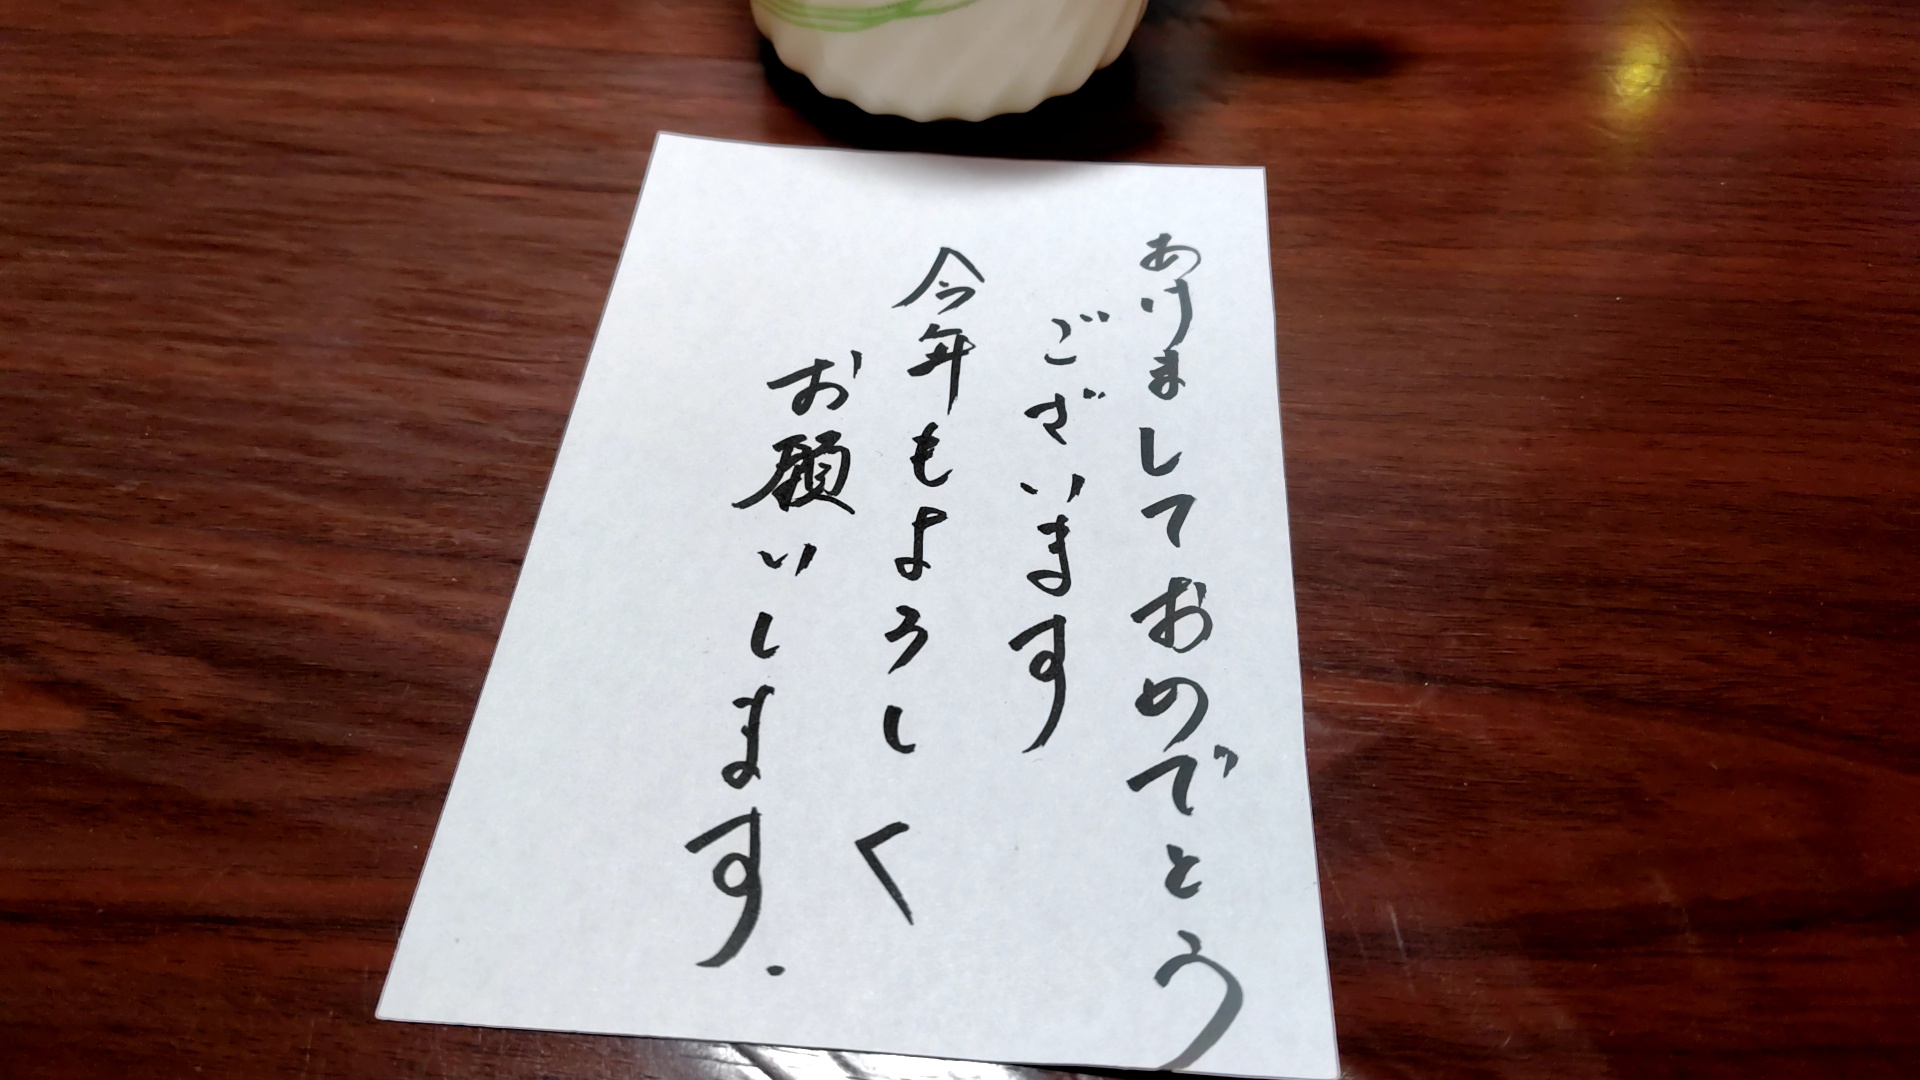 あけましておめでとう
ございます
今年もよろしく
お願いします.